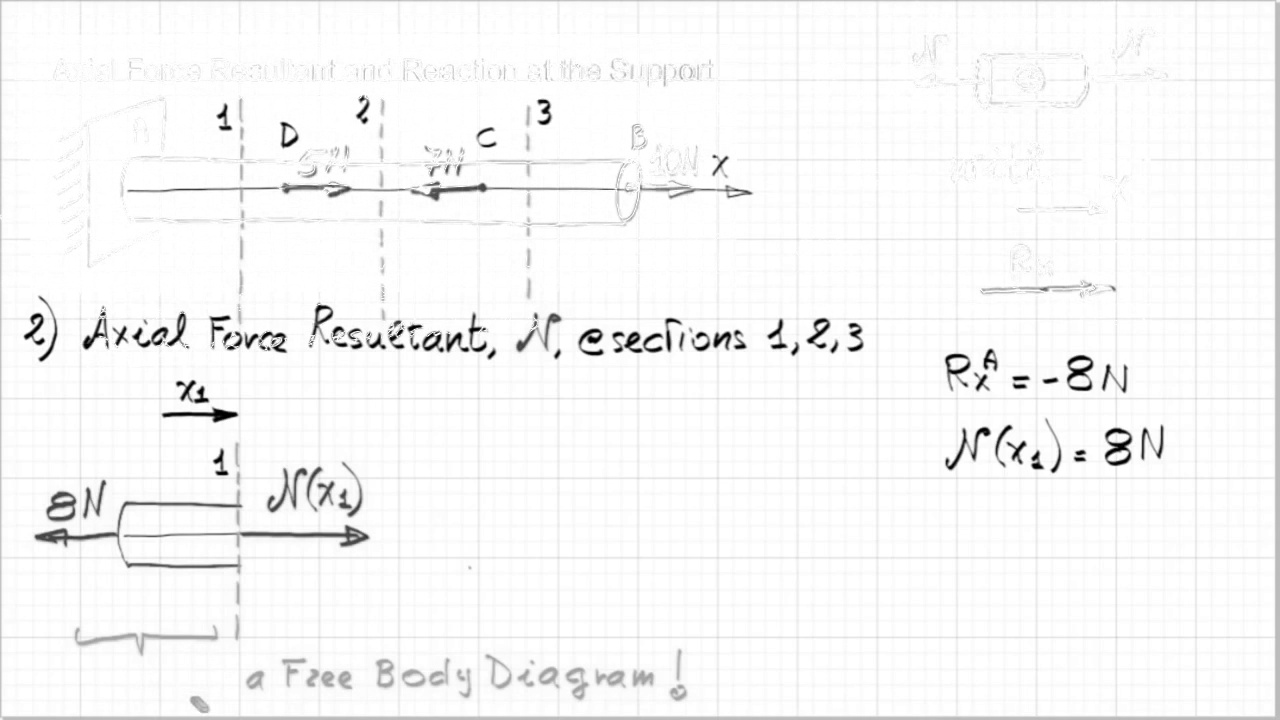 Axial Force Resultant and Reaction at the Support
N N
1 2 3
A D C B
5N 7N 10N x
x
Rx
2) Axial Force Resultant, N, @sections 1,2,3
RxA = -8N
x1
N(x1) = 8N
1
8N N(x1)
a Free Body Diagram!